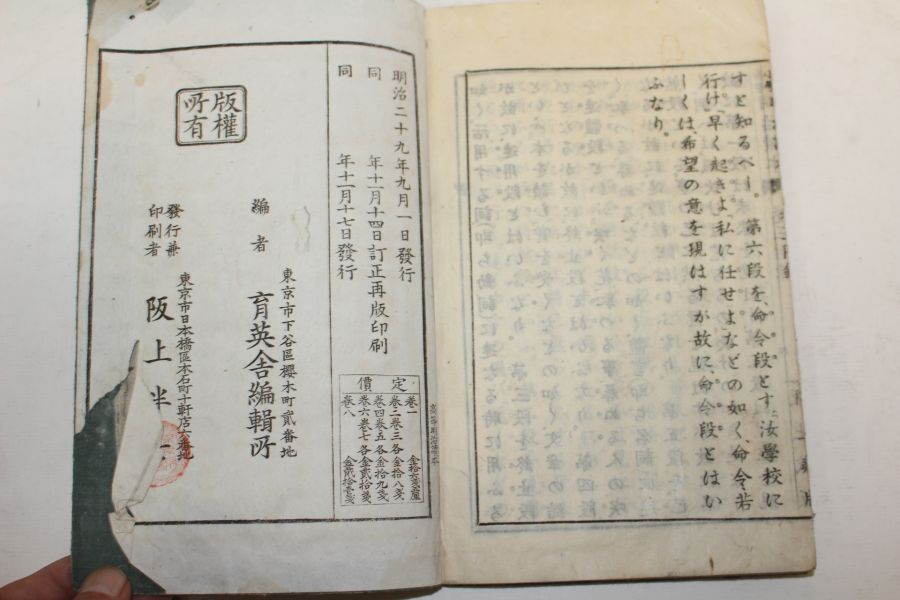 すと知るべし。第六段を、命令段とす。汝學校に
行け「早く起きよ「私に任せよ「などの如く、命令若
しくは、希望の意を現はすが故に、命令段とはい
ふなり。
明治二十九年九月一日發行
同年十一月十四日訂正再版印刷
同年十一月十七日發行
定價
卷一
卷二卷三各金拾八錢
卷四卷五各金拾九錢
卷六卷七各金貳拾錢
卷八
版權所有
編者
東京市下谷區櫻木町貳番地
育英舍編輯所
發行兼
印刷者
東京市日本橋區本石町十軒店六番地
阪上半